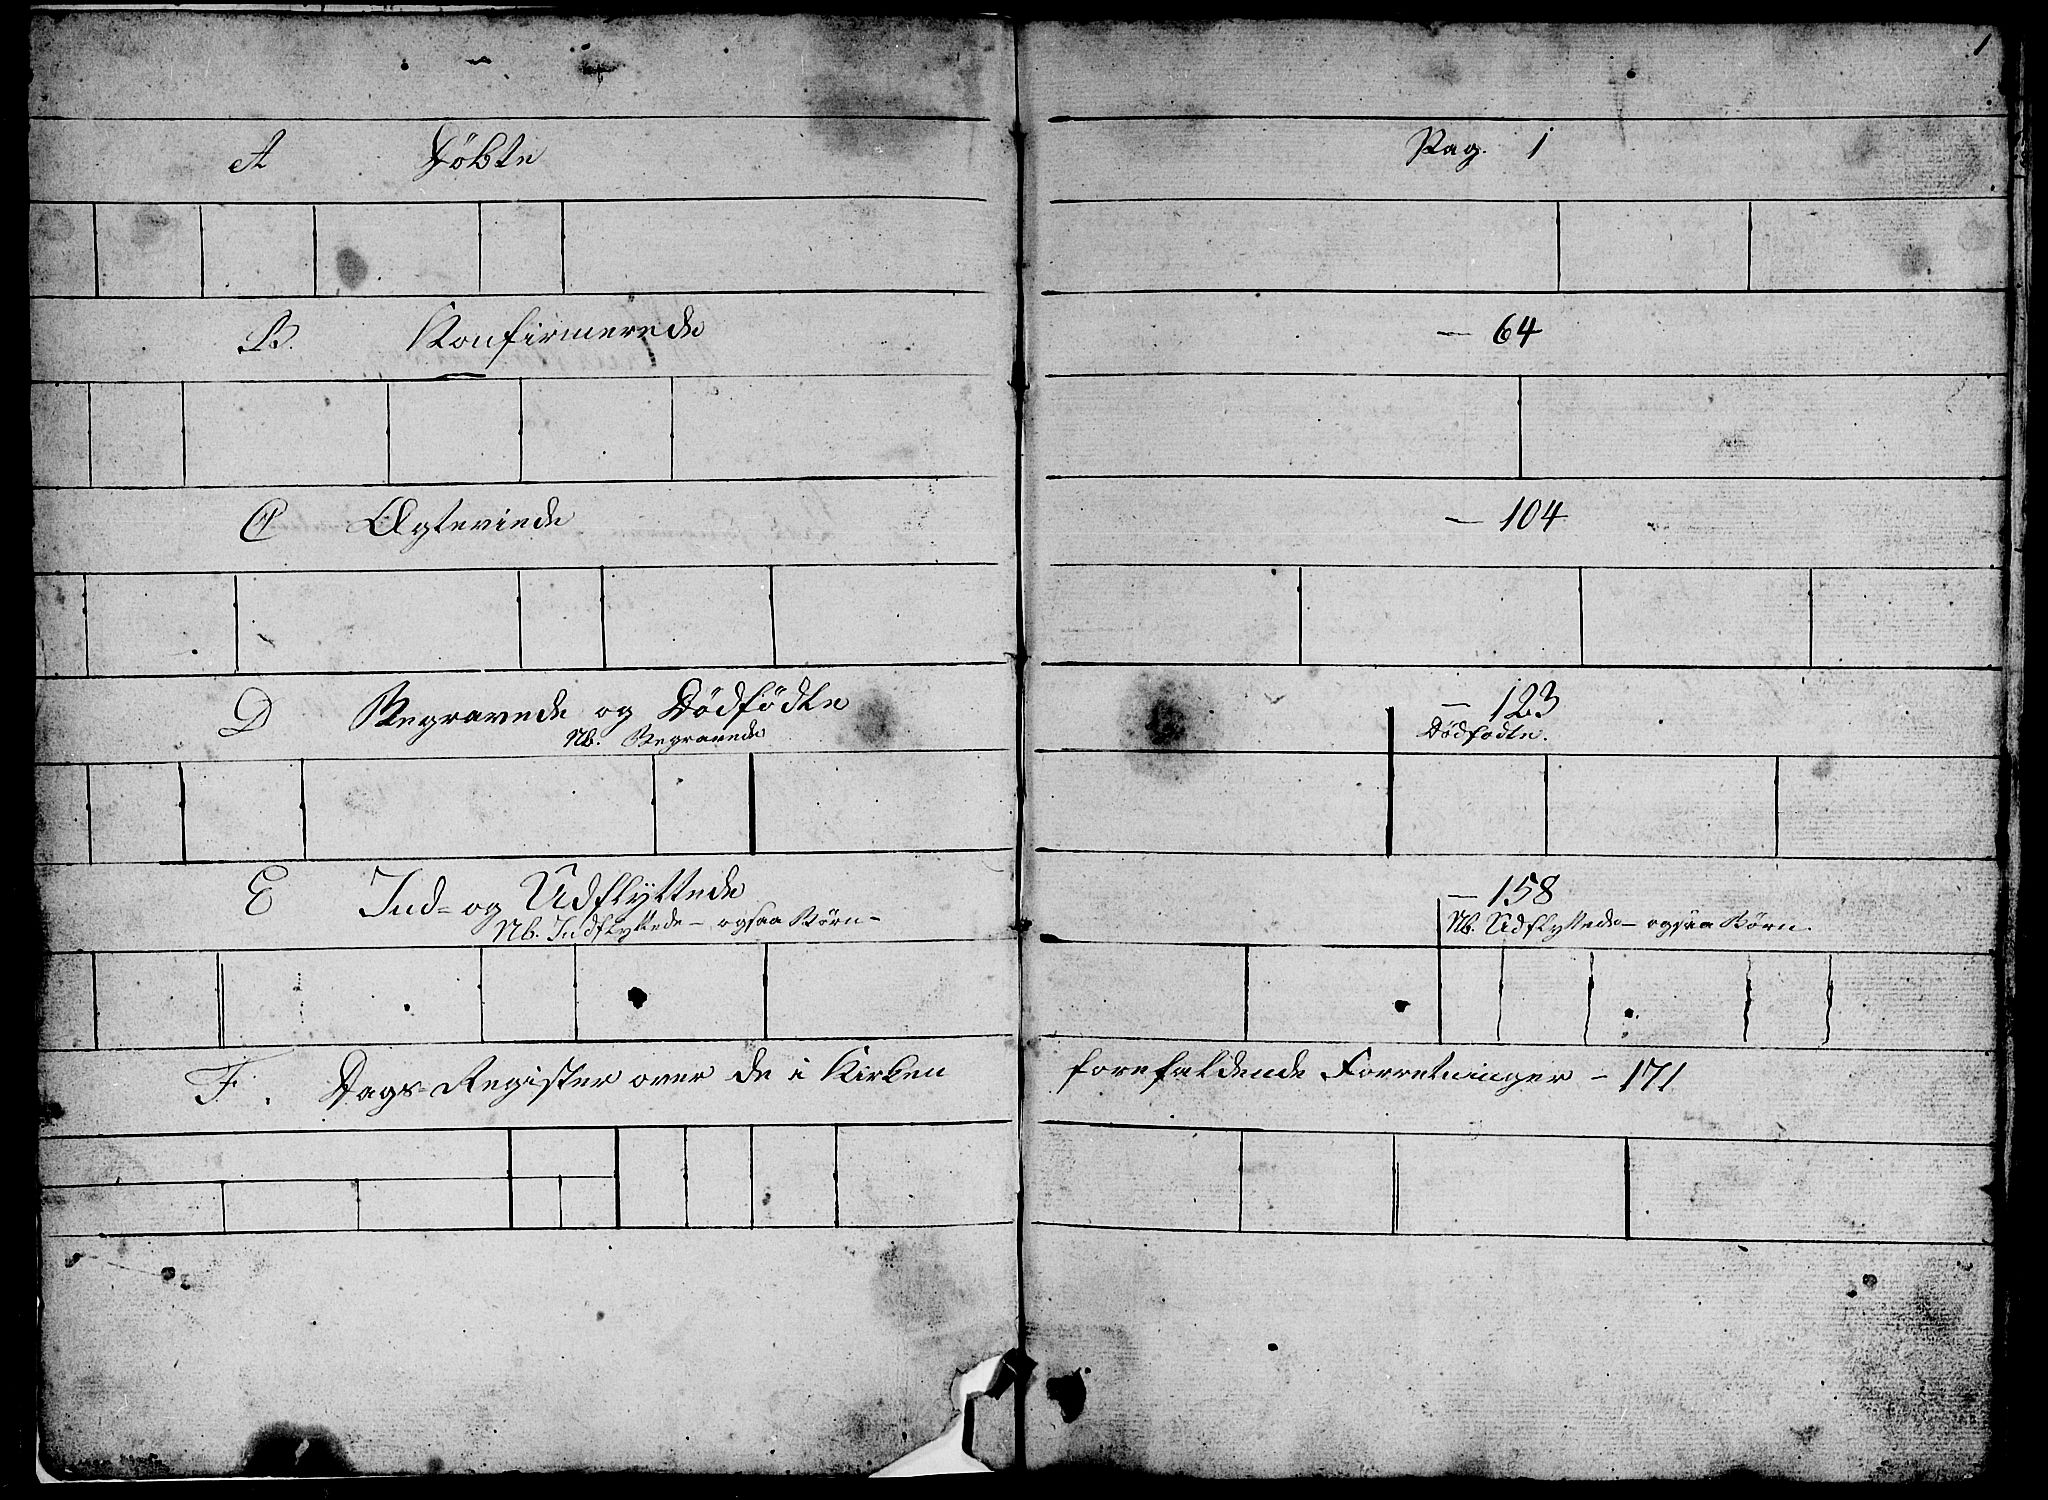 1
A Döbte Pag. 1
B. Konfirmerede — 64
C Ægteviede — 104
D Begravede og Dödfödte — 123
Nb. Begravede Dödfödte.
E Ind- og Udflyttede — 158
Nb. Indflyttede — ogsaa Börn — Nb. Udflyttede — ogsaa Börn.
F. Dags-Register over de i Kirken forefaldende Forretninger — 171